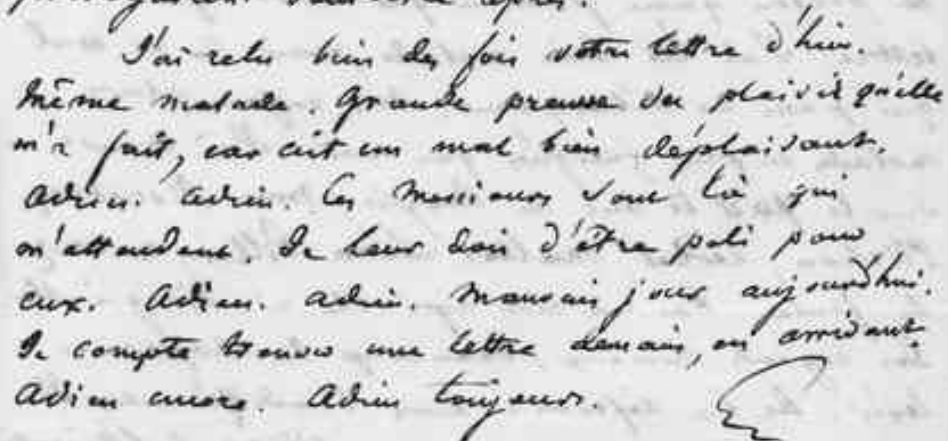 après.
J'ai relu bien des fois votre lettre d'hier.
Même malade. Grande preuve du plaisir qu'elle
m'a fait, car c'est un mal bien déplaisant.
Adieu. Adieu. Ces Messieurs sont là qui
m'attendent. Je leur dois d'être poli pour
eux. Adieu. Adieu. Mauvais jour aujourd'hui.
Je compte trouver une lettre demain, en arrivant.
Adieu encore. Adieu toujours.